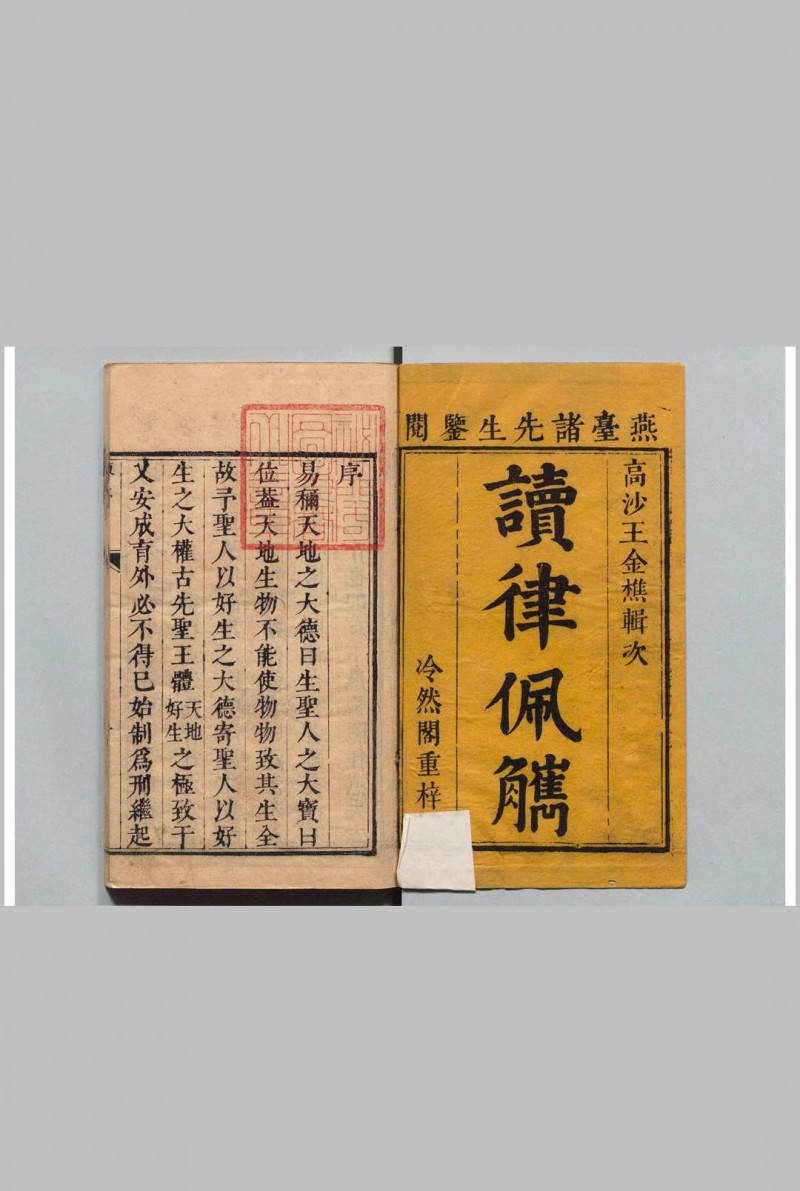 燕臺諸先生鑒閱
高沙王金樵輯次
讀律佩觽
冷然閣重梓
序
易稱天地之大德曰生聖人之大寶曰
位葢天地生物不能使物物致其生全
故予聖人以好生之大德寄聖人以好
生之大權古先聖王體天地好生之極致于
乂安成育外必不得已始制爲刑繼起